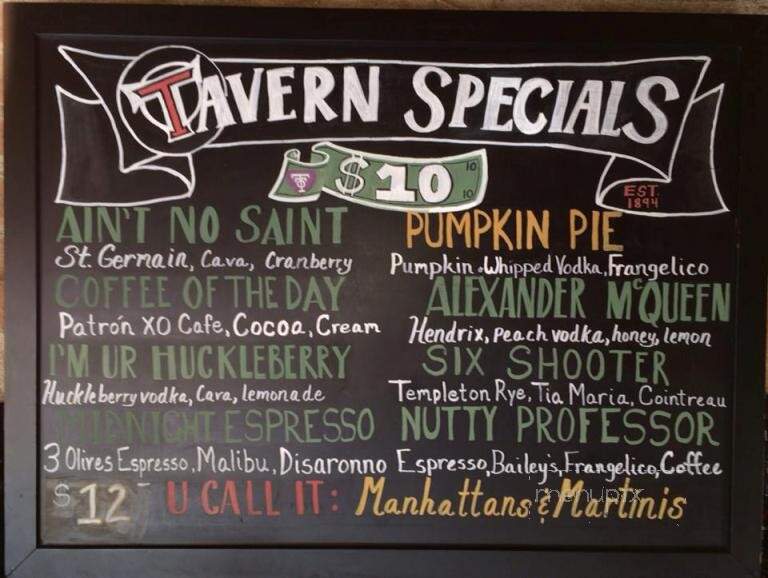 TAVERN SPECIALS
TS $10 10 10
EST. 1894
AIN'T NO SAINT
St. Germain, Cava, Cranberry
COFFEE OF THE DAY
Patrón XO Cafe, Cocoa, Cream
I'M UR HUCKLEBERRY
Huckleberry vodka, Cava, lemonade
MIDNIGHT ESPRESSO
3 Olives Espresso, Malibu, Disaronno
PUMPKIN PIE
Pumpkin & Whipped Vodka, Frangelico
ALEXANDER McQUEEN
Hendrix, peach vodka, honey, lemon
SIX SHOOTER
Templeton Rye, Tia Maria, Cointreau
NUTTY PROFESSOR
Espresso, Bailey's, Frangelico, Coffee
$12- U CALL IT: Manhattans & Martinis
menupix